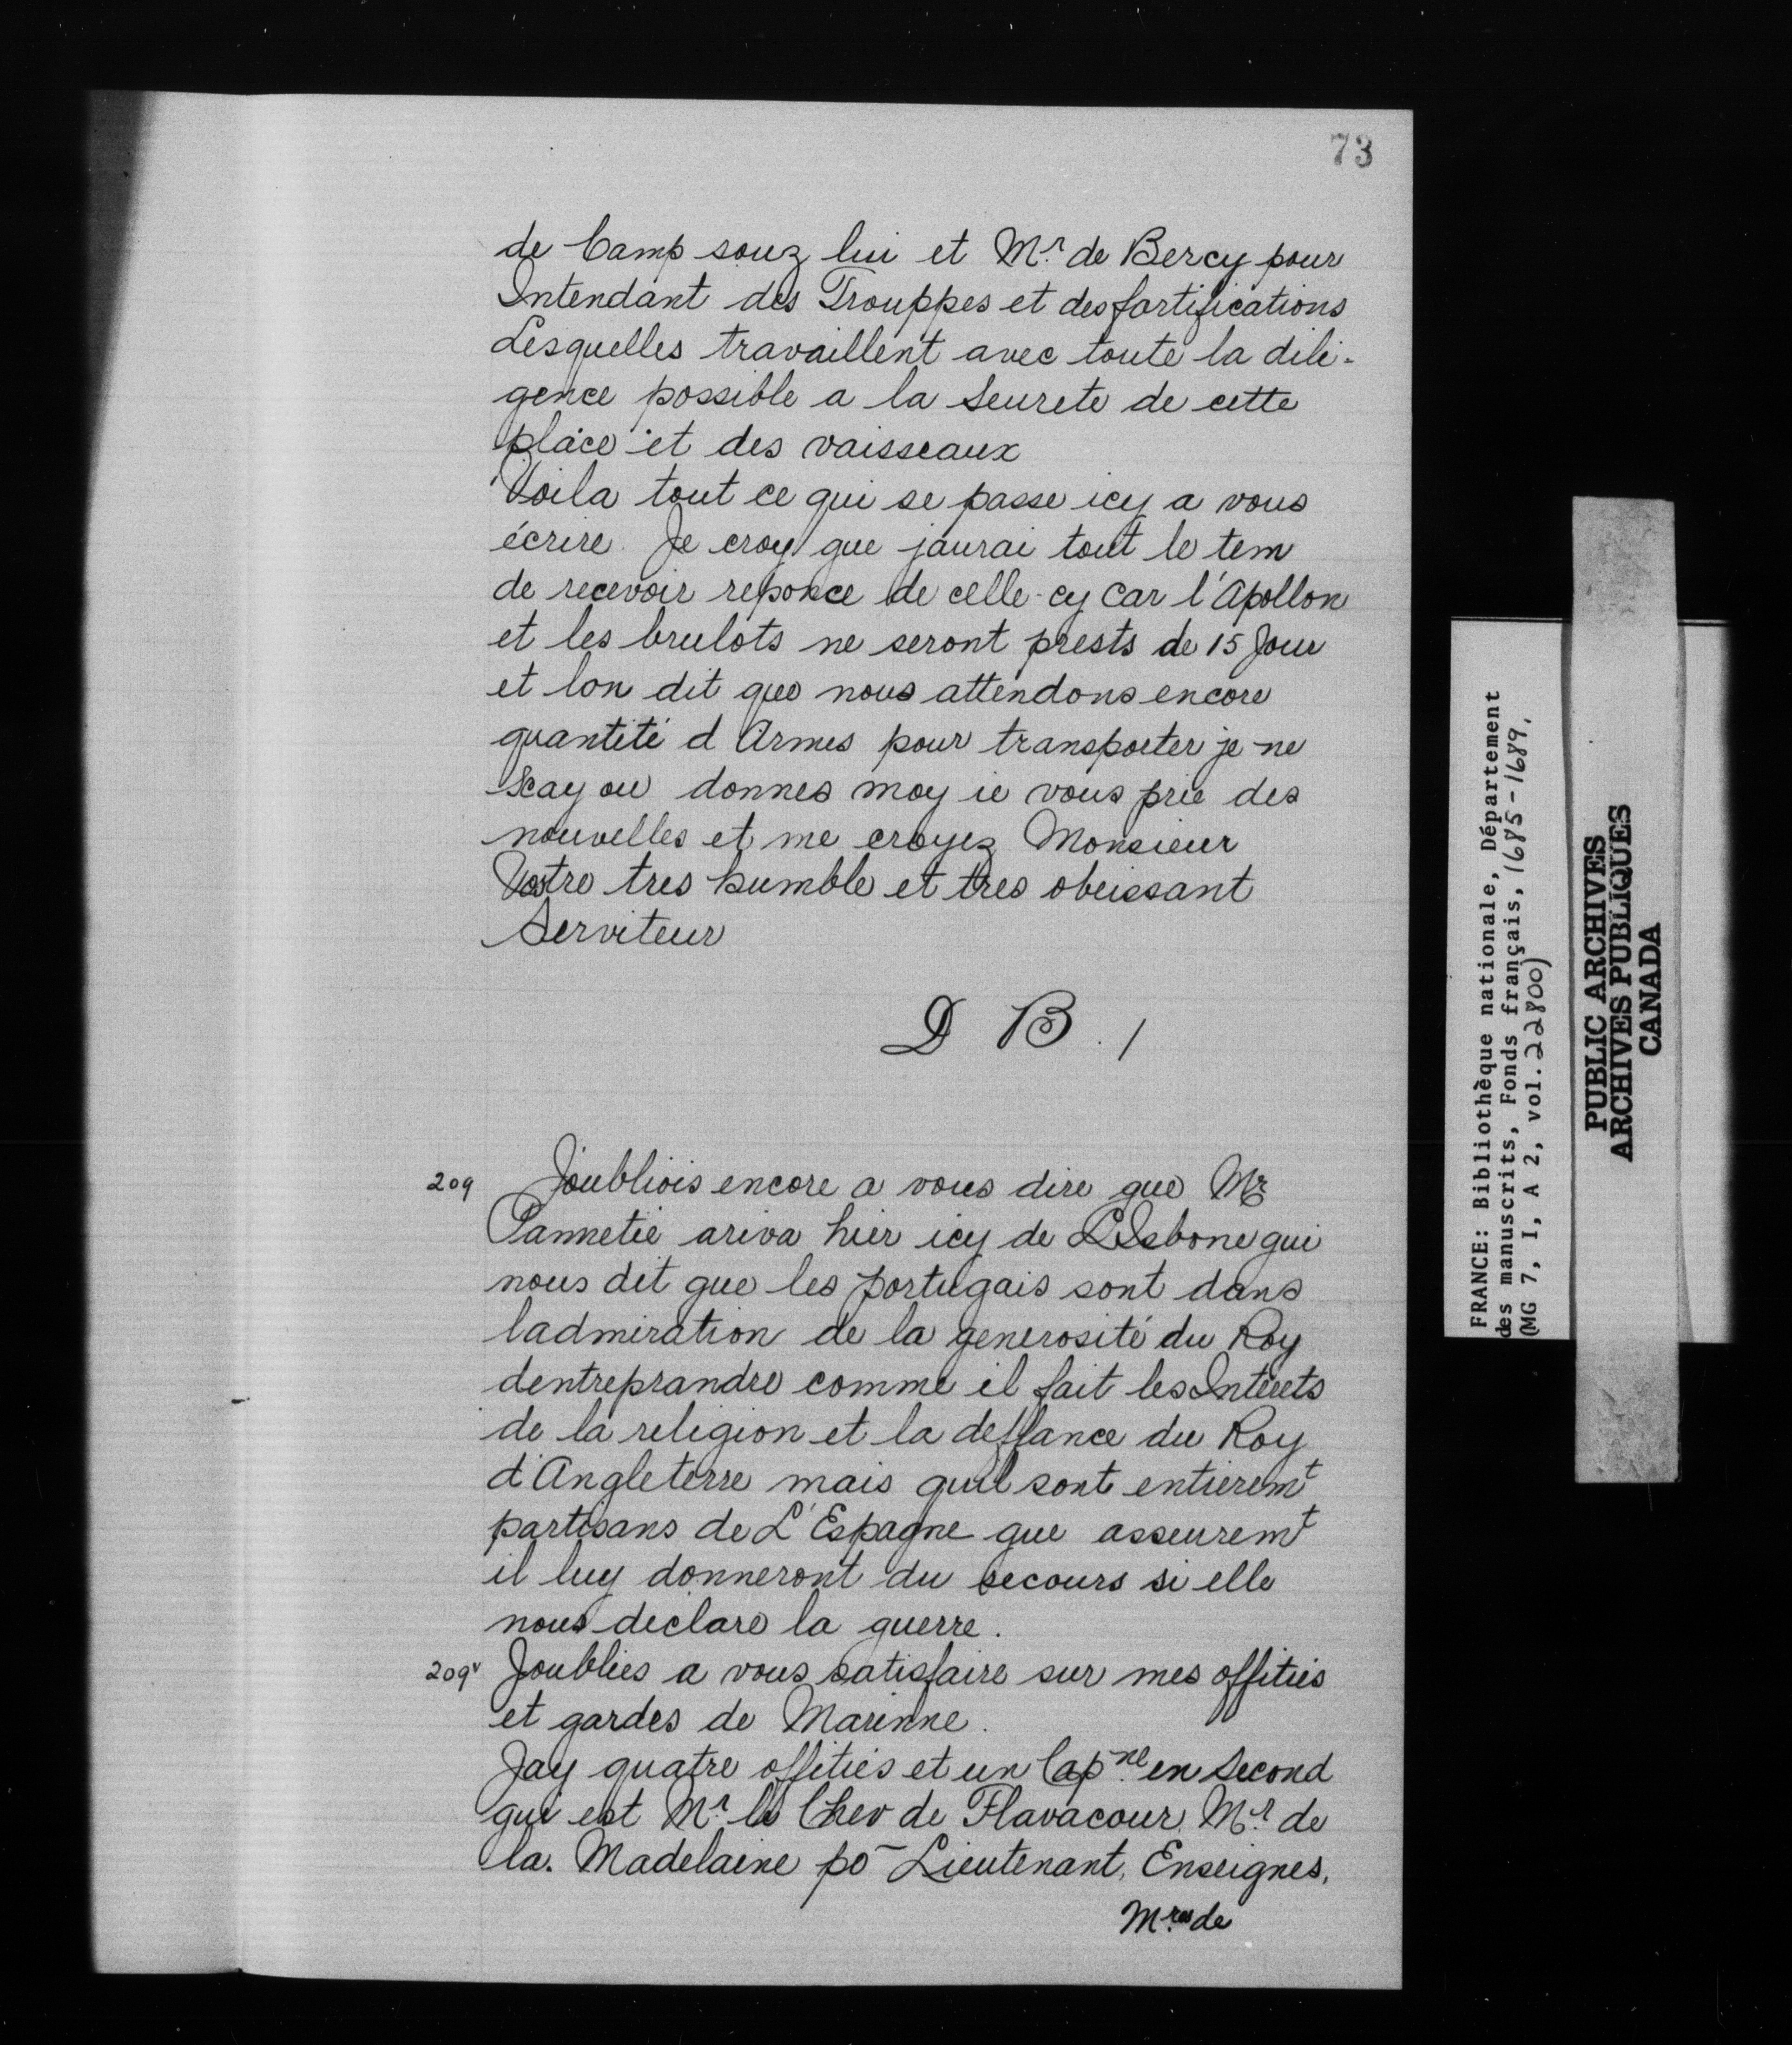 73
de Camp souz lui et Mr. de Bercy pour
Intendant des Trouppes et des fortifications
Lesquelles travaillent avec toute la dili-
gence possible a la Seurete de cette
place et des vaisseaux
Voila tout ce qui se passe icy a vous
écrire. Je croy que jaurai tout le tem
de recevoir reponce de celle-cy Car l'Apollon
et les brulots ne seront prests de 15 Jour
et lon dit que nous attendons encore
quantité d Armes pour transporter je ne
scay ou donnes moy ie vous prie des
nouvelles et me croyez Monsieur
Vostre tres humble et tres obeissant
Serviteur
D B. /
209 J'oubliois encore a vous dire que Mr
Pannetié ariva hier icy de Lisbone qui
nous dit que les portugais sont dans
ladmiration de la generosité du Roy
dentreprandre comme il fait les Interets
de la religion et la deffance du Roy
d'Angleterre mais quil sont entieremt
partisans de L'Espagne que asseuremt
il luy donneront du secours si elle
nous declare la guerre.
209v Joublies a vous satisfaire sur mes offitiés
et gardes de Marinne.
Jay quatre offitiés et un Capne. en Second
qui est Mr. le Chev de Flavacour. Mr. de
la. Madelaine po Lieutenant, Enseignes,
Mres de
FRANCE: Bibliothèque nationale, Département
des manuscrits, Fonds français, 1685-1689.
(MG 7, I, A 2, vol. 22800)
PUBLIC ARCHIVES
ARCHIVES PUBLIQUES
CANADA